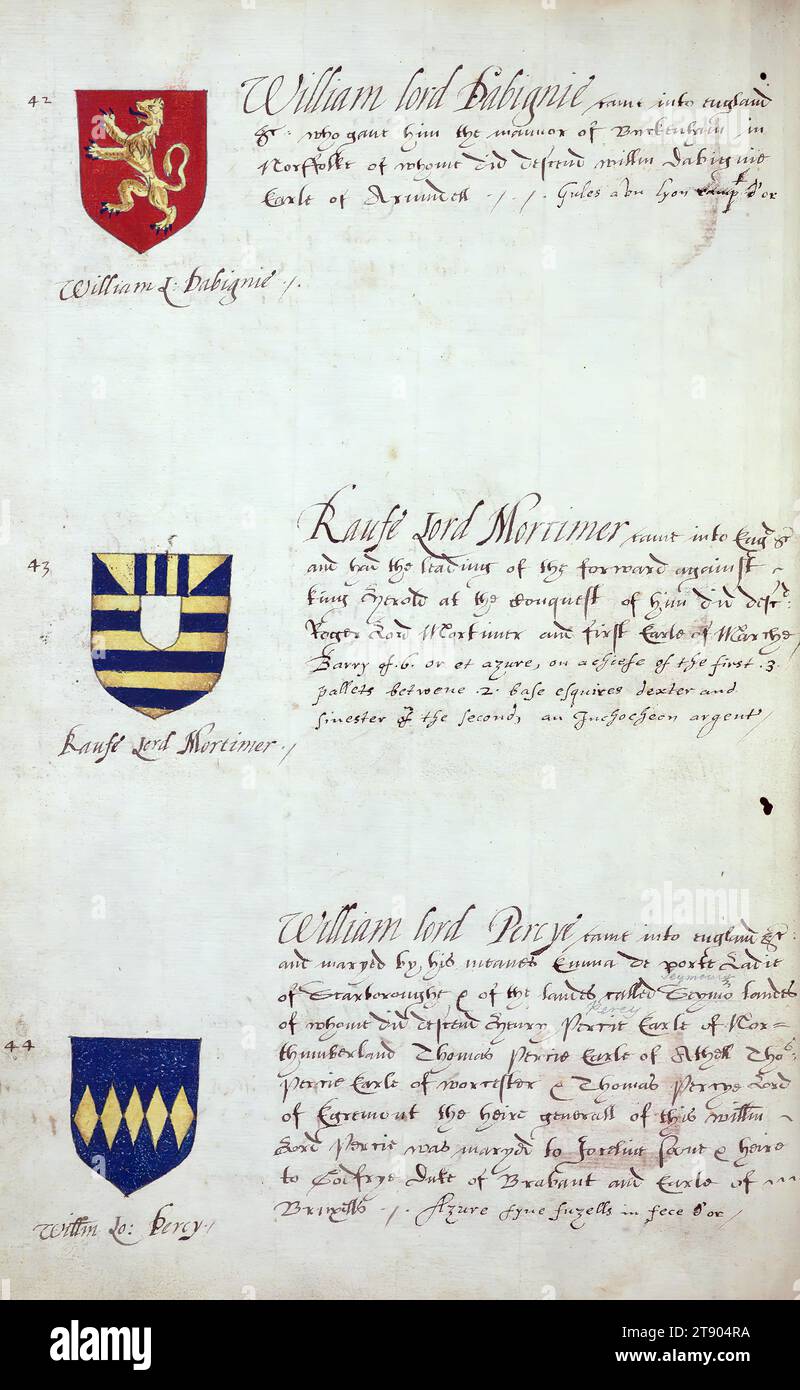 42
William lord Dabignie came into england
&c: who gave him the mannor of Buckenham in
Norffolke of whome did descend willm Dabignie
Earle of Arundell / / . Gules a on lyon ramp d'or
William L: Dabignie ./.
43
Raufe Lord Mortimer came into Eng &c
and had the leading of the forward against
king Herold at the Conquest of him did desc:
Roger Lord Mortimer and first Earle of Marche
Barry of .6. or et azure, on a cheefe of the first .3.
pallets betwene .2. base esquires dexter and
sinester of the second, an Inchocheon argent /
Raufe Lord Mortimer ./
44
William lord Percye came into england &c:
and maryed by his meanes Emma de Porte Ladie
Seymours
of Scarboroughe & of the landes called Seymo landes
Percy
of whome did descend Henry Percie Earle of Nor=
thumberland Thomas Percie Earle of Athell Tho:
Percie Earle of worcester & Thomas Percye Lord
of Egremont the heire generall of this willm
Lord Percie was maryed to Joceline sone & heire
to Godfrye Duke of Brabant and Earle of
Bruxells ./. Azure fyve fuzells in fece d'or /
Willm Lo: Percy /
alamy
alamy
Image ID: 2T904RA
www.alamy.com